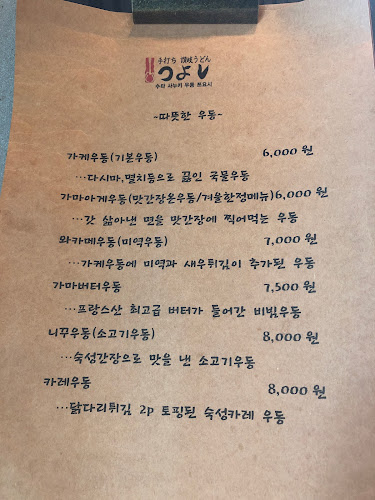 手打ち 讃岐うどん
つよし
수타 사누키 우동 쯔요시
~따뜻한 우동~
가케우동(기본우동) 6,000 원
…다시마,멸치등으로 끓인 국물우동
가마아게우동(맛간장온우동/겨울한정메뉴)6,000 원
…갓 삶아낸 면을 맛간장에 찍어먹는 우동
와카메우동(미역우동) 7,000 원
…가케우동에 미역과 새우튀김이 추가된 우동
가마버터우동 7,500 원
…프랑스산 최고급 버터가 들어간 비빔우동
니꾸우동(소고기우동) 8,000 원
…숙성간장으로 맛을 낸 소고기우동
카레우동 8,000 원
…닭다리튀김 2p 토핑된 숙성카레 우동